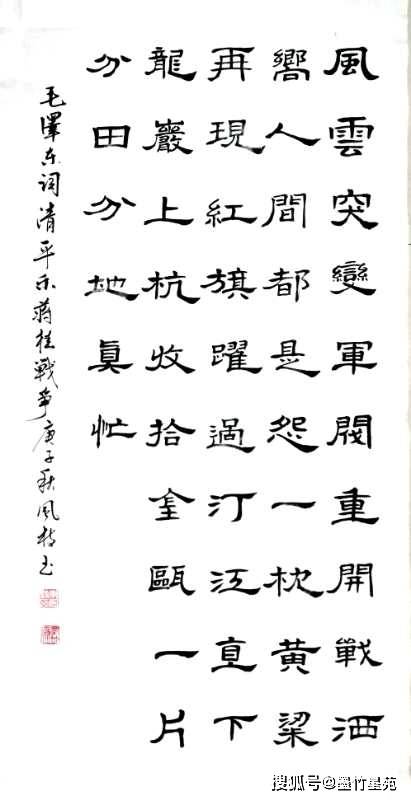 風雲突變軍閥重開戰洒
嚮人間都是怨一枕黃粱
再現紅旗躍過汀江直下
龍巖上杭收拾金甌一片
分田分地真忙
毛澤东词清平乐蔣桂戰争庚子秋風书
搜狐号@墨竹星苑